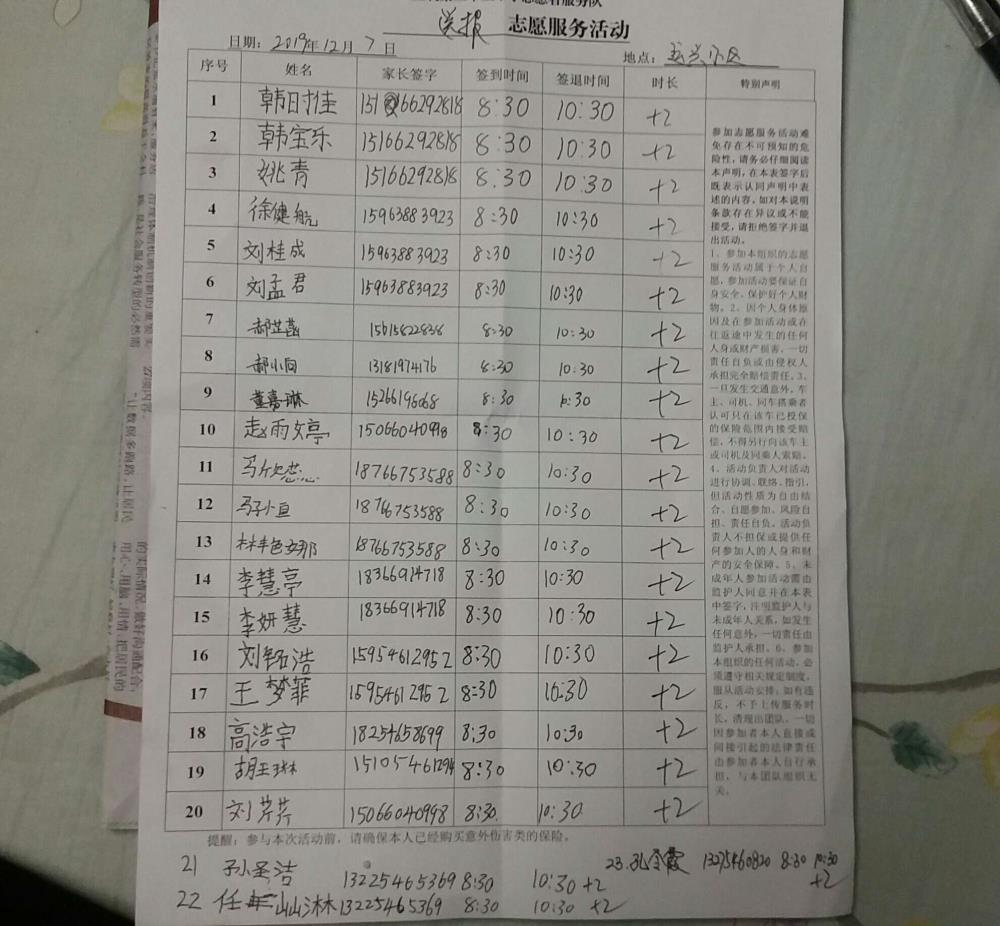 送报 志愿服务活动
日期：2019年12月7日 地点：
序号 姓名 家长签字 签到时间 签退时间 时长 特别声明
1 韩时佳 15166292818 8:30 10:30 +2
2 韩宝乐 15166292818 8:30 10:30 +2
3 姚青 15166292818 8:30 10:30 +2
4 徐健航 15963883923 8:30 10:30 +2
5 刘桂成 15963883923 8:30 10:30 +2
6 刘孟君 15963883923 8:30 10:30 +2
7 8:30 10:30 +2
8 郝小向 13181974176 8:30 10:30 +2
9 董嘉琳 15266196068 8:30 10:30 +2
10 赵雨婷 15066040998 8:30 10:30 +2
11 18766753588 8:30 10:30 +2
12 18766753588 8:30 10:30 +2
13 18766753588 8:30 10:30 +2
14 李慧亭 18366914718 8:30 10:30 +2
15 李妍慧 18366914718 8:30 10:30 +2
16 刘钰浩 15954612952 8:30 10:30 +2
17 王梦菲 15954612952 8:30 10:30 +2
18 高浩宇 18254658699 8:30 10:30 +2
19 胡玉琳 15105461294 8:30 10:30 +2
20 刘芹芹 15066040998 8:30 10:30 +2
参加志愿服务活动难
免存在不可预知的危
险性，请务必仔细阅读
本声明，在本表签字后
既表示认同声明中表
述的内容，如对本说明
条款存在异议或不能
接受，请拒绝签字并退
出活动。
1、参加本组织的志愿
服务活动属于个人自
愿，参加活动要保证自
身安全，保护好个人财
物。2、因个人身体原
因及在参加活动或在
往返途中发生的任何
人身或财产损害，一切
责任自负或由侵权人
承担完全赔偿责任。3、
一旦发生交通意外，车
主、司机、同车搭乘者
认可只在该车已投保
的保险范围内接受赔
偿，不得另行向该车主
或司机及同乘人索赔。
4、活动负责人对活动
进行协调、联络、指引，
但活动性质为自由结
合、自愿参加、风险自
担、责任自负。活动负
责人不担保或提供任
何参加人的人身和财
产的安全保障。5、未
成年人参加活动需由
监护人同意并在本表
中签字，注明监护人与
未成年人关系，如发生
任何意外，一切责任由
监护人承担。6、参加
本组织的任何活动，必
须遵守相关规定制度，
服从活动安排；如有违
反，不予上传服务时
长，清理出团队。一切
因参加者本人直接或
间接引起的法律责任
由参加者本人自行承
担，与本团队组织无
关。
提醒：参与本次活动前，请确保本人已经购买意外伤害类的保险。
21 孙圣洁 13225465369 8:30 10:30 +2
22 任 13225465369 8:30 10:30 +2
23.孔令霞 13275460820 8:30 10:30 +2